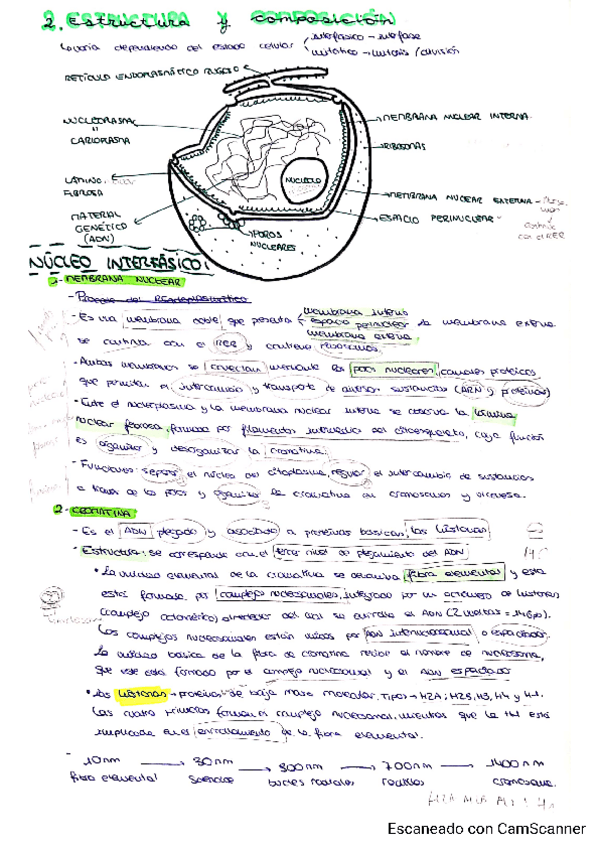 2. Estructura y composición
Lo varía dependiendo del estado celular interfásico → interfase
mitótico → mitosis / división
RETÍCULO ENDOPLASMÁTICO RUGOSO
NUCLEOPLASMA
=
CARIOPLASMA
LÁMINA
FIBROSA
MATERIAL
GENÉTICO
(ADN)
NUCLÉOLO
POROS
NUCLEARES
MEMBRANA NUCLEAR INTERNA
RIBOSOMAS
MEMBRANA NUCLEAR EXTERNA
ESPACIO PERINUCLEAR
NÚCLEO INTERFÁSICO:
1- MEMBRANA NUCLEAR
- Es una membrana doble, que presenta membrana interna
espacio perinuclear
membrana externa
la membrana externa
se continua con el RER y contiene ribosomas.
- Ambas membranas se conectan mediante los poros nucleares, canales proteicos
que permiten el intercambio y transporte de diversas sustancias (ARN y proteínas)
- Entre el nucleoplasma y la membrana nuclear interna se observa la lámina
nuclear fibrosa, formada por filamentos intermedios del citoesqueleto, cuya función
es organizar y desorganizar la cromatina.
- Funciones: separar el núcleo del citoplasma, regular el intercambio de sustancias
a través de los poros y organizar la cromatina en cromosomas y viceversa.
2- CROMATINA
- Es el ADN plegado y asociado a proteínas básicas, las histonas
- Estructura: se corresponde con el tercer nivel de plegamiento del ADN
• La unidad elemental de la cromatina se denomina fibra elemental y esta
está formada por complejos nucleosomales, integrado por un octámero de histonas
(complejo octamérico) alrededor del cual se enrolla el ADN (2 vueltas = 146pb).
Los complejos nucleosomales están unidos por ADN internucleosomal o espaciador.
La unidad básica de la fibra de cromatina recibe el nombre de nucleosoma,
que está formado por el complejo nucleosomal y el ADN espaciador
• Las histonas → proteínas de baja masa molecular. Tipos → H2A, H2B, H3, H4 y H1.
Las cuatro primeras forman el complejo nucleosomal, mientras que la H1 está
implicada en el enrollamiento de la fibra elemental.
- 10nm → 30nm → 300nm → 700nm → 1400nm
fibra elemental solenoide bucles radiales rosetones cromosoma.
Escaneado con CamScanner